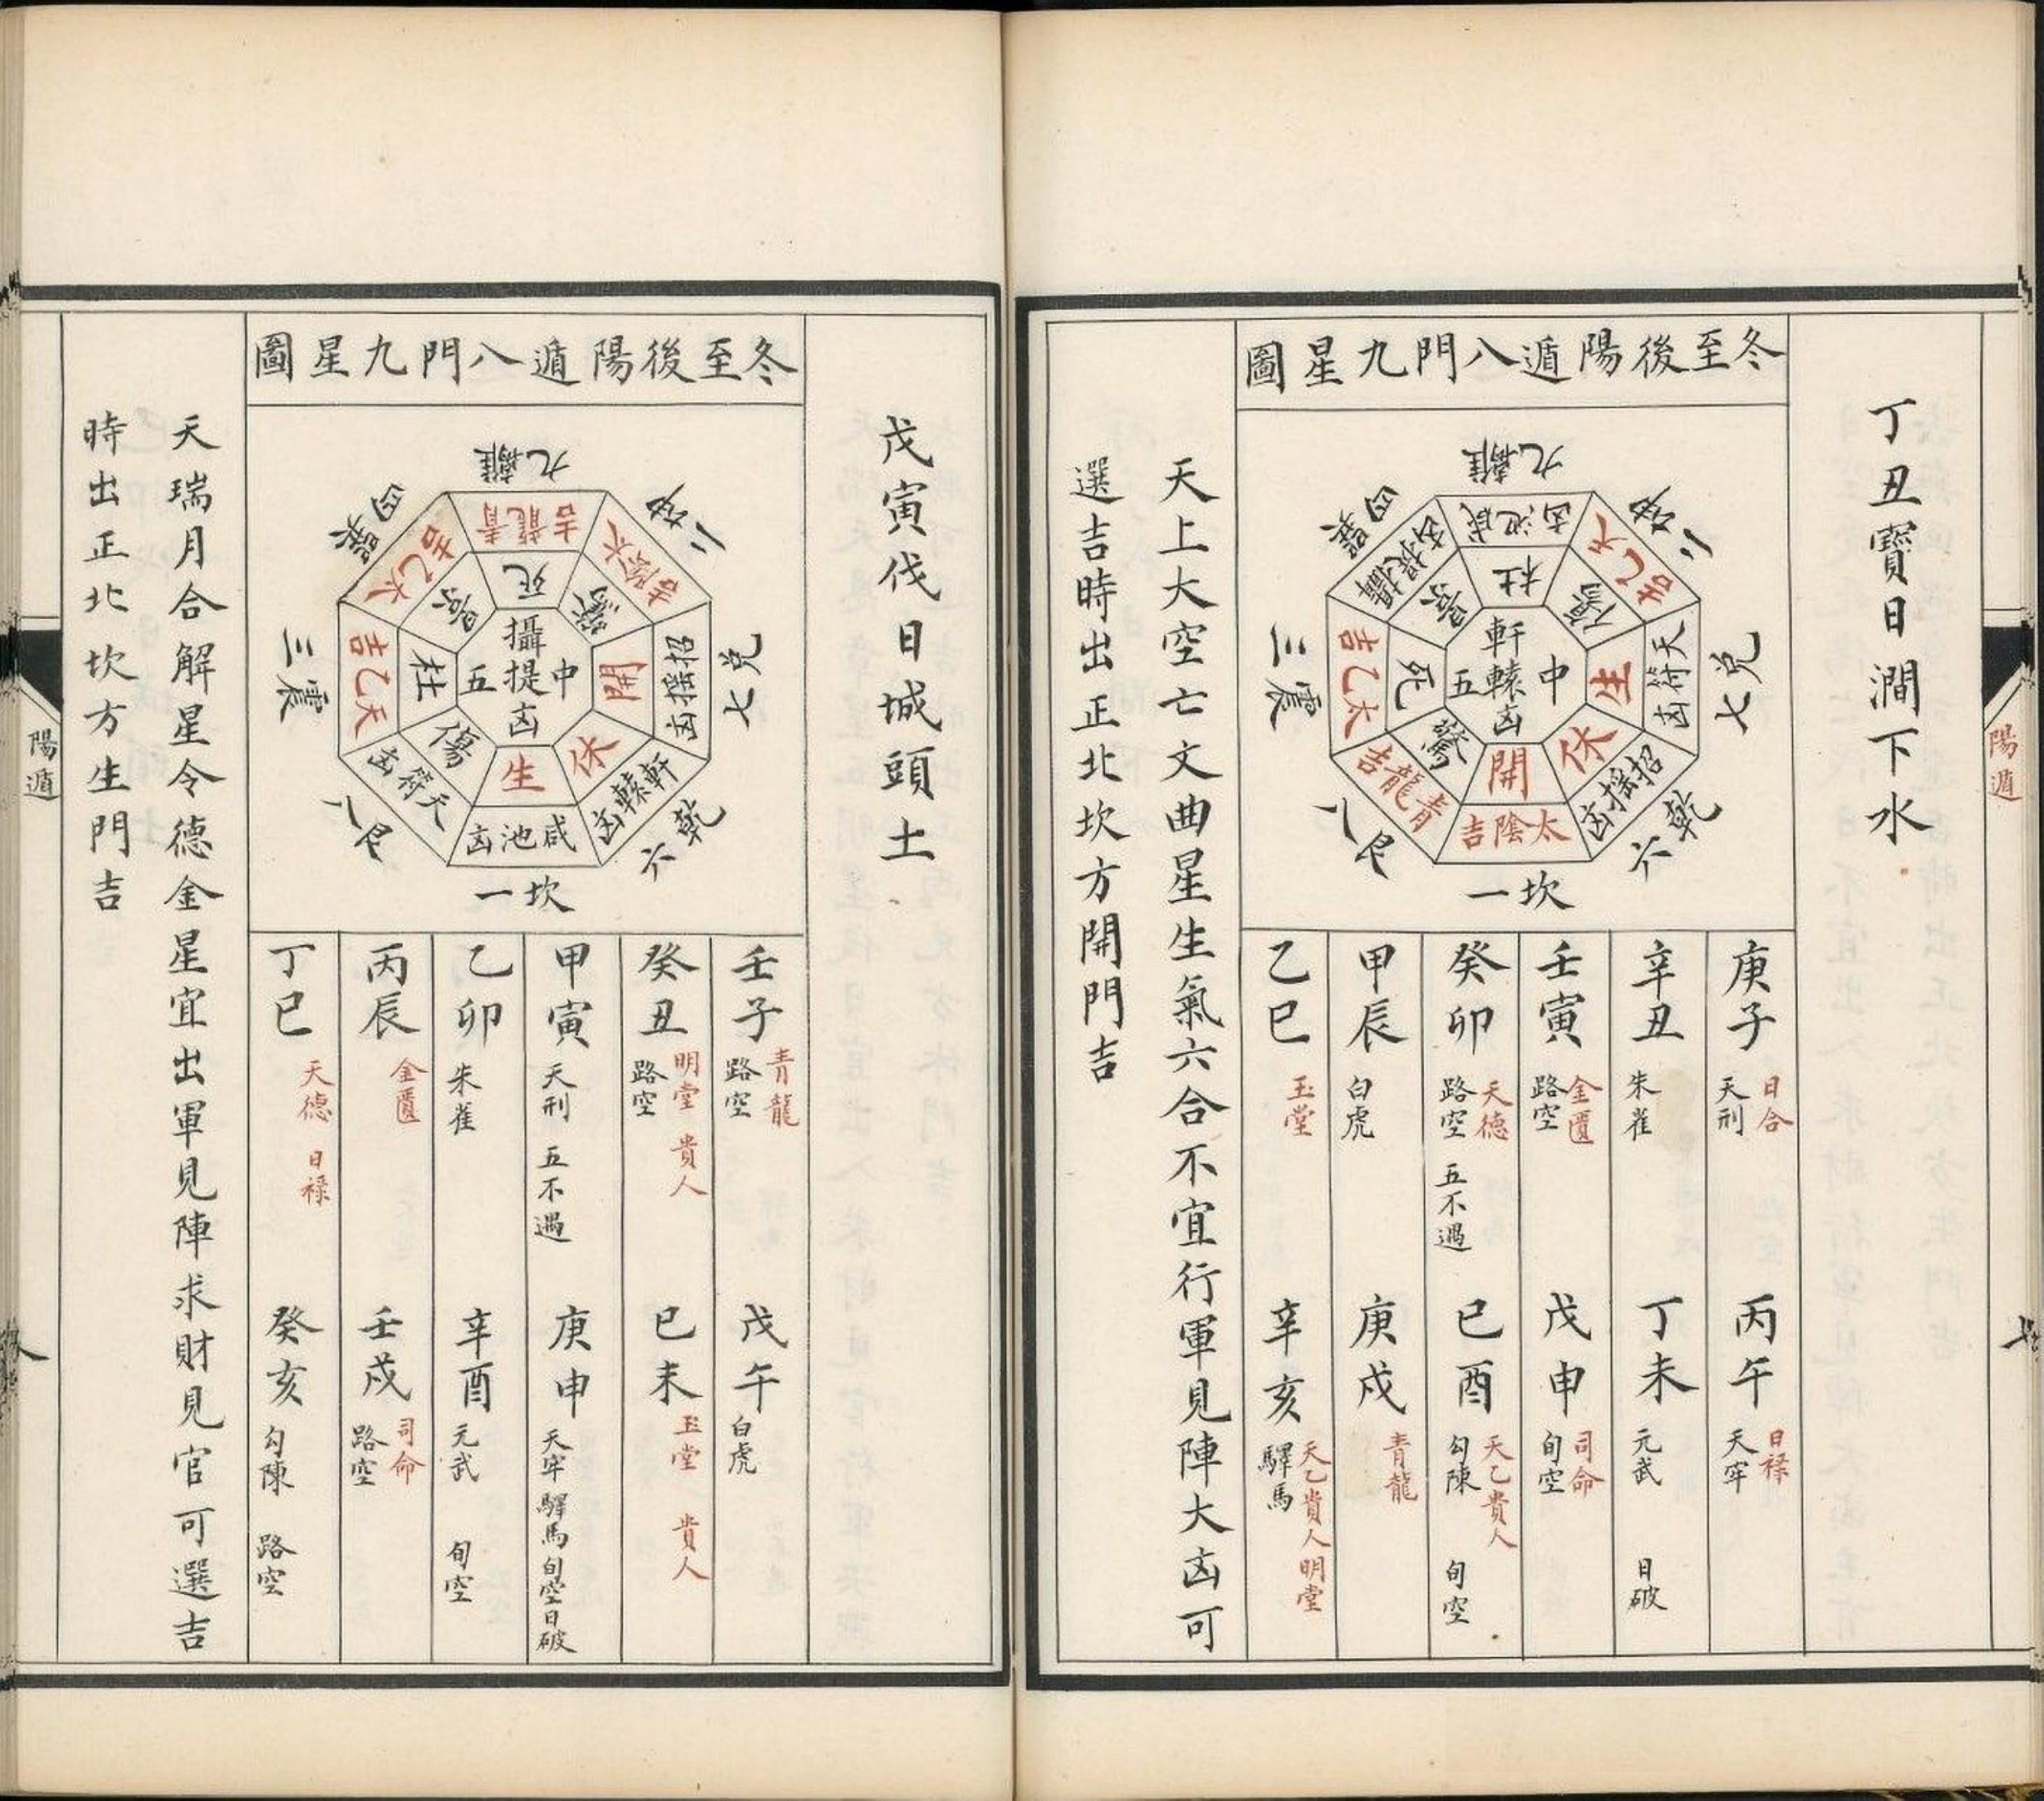 陽遁
七
丁丑寶日澗下水
冬至後陽遁八門九星圖
九離
咸池凶
杜
二坤
天乙吉
傷
七兌
天符凶
生
六乾
招搖凶
休
一坎
太陰吉
開
八艮
青龍吉
驚
三震
太乙吉
死
四巽
攝提凶
景
中軒轅凶五
庚子 日合 天刑
丙午 日祿 天牢
辛丑 朱雀
丁未 元武 日破
壬寅 金匱 路空
戊申 司命 旬空
癸卯 天德 路空 五不遇
己酉 天乙貴人 勾陳 旬空
甲辰 白虎
庚戌 青龍
乙巳 玉堂
辛亥 天乙貴人 明堂 驛馬
天上大空亡文曲星生氣六合不宜行軍見陣大凶可
選吉時出正北坎方開門吉
戊寅伐日城頭土
冬至後陽遁八門九星圖
九離
青龍吉
死
二坤
太陰吉
驚
七兌
招搖凶
開
六乾
軒轅凶
休
一坎
咸池凶
生
八艮
天符凶
傷
三震
天乙吉
杜
四巽
太乙吉
景
中攝提凶五
壬子 青龍 路空
戊午 白虎
癸丑 明堂 貴人 路空
己未 玉堂 貴人
甲寅 天刑 五不遇
庚申 天牢 驛馬 旬空 日破
乙卯 朱雀
辛酉 元武 旬空
丙辰 金匱
壬戌 司命 路空
丁巳 天德 日祿
癸亥 勾陳 路空
天瑞月合解星令德金星宜出軍見陣求財見官可選吉
時出正北坎方生門吉
陽遁
八